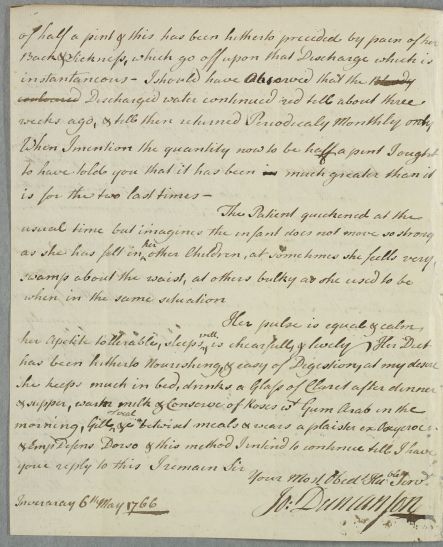 of half a pint & this has been hitherto preceded by pain of her
Back & Sickness, which go off upon that Discharge which is
instantaneous - I should have observed that the Bloody
coloured Discharged water continued red till about three
weeks ago, & till then returned Periodicaly Monthly only
When I mention the quantity now to be half a pint I ought
to have told you that it has been in much greater than it
is for the two last times -
The Patient quickened at the
usual time but imagines the infant does not move so strong
as she has felt in her other Children, at sometimes she feells very
swamp about the waist, at others bulky as she used to be
when in the same situation
Her pulse is equal & calm
her Apetite tollerable, sleeps well is chearfull & lively Her Diet
has been hitherto Nourishing & easy of Digestion, at my desire
she keeps much in bed, drinks a Glass of Claret after dinner
& supper, warm milk & Conserve of Roses wt Gum Arab in the
morning, betwixt meals & wears a plaister ex
& Dorso & this method I intend to continue till I have
your reply to this I remain Sir
Your Most Obedt Hule Servt
Jo: Duncanson
Inveraray 6th May 1766